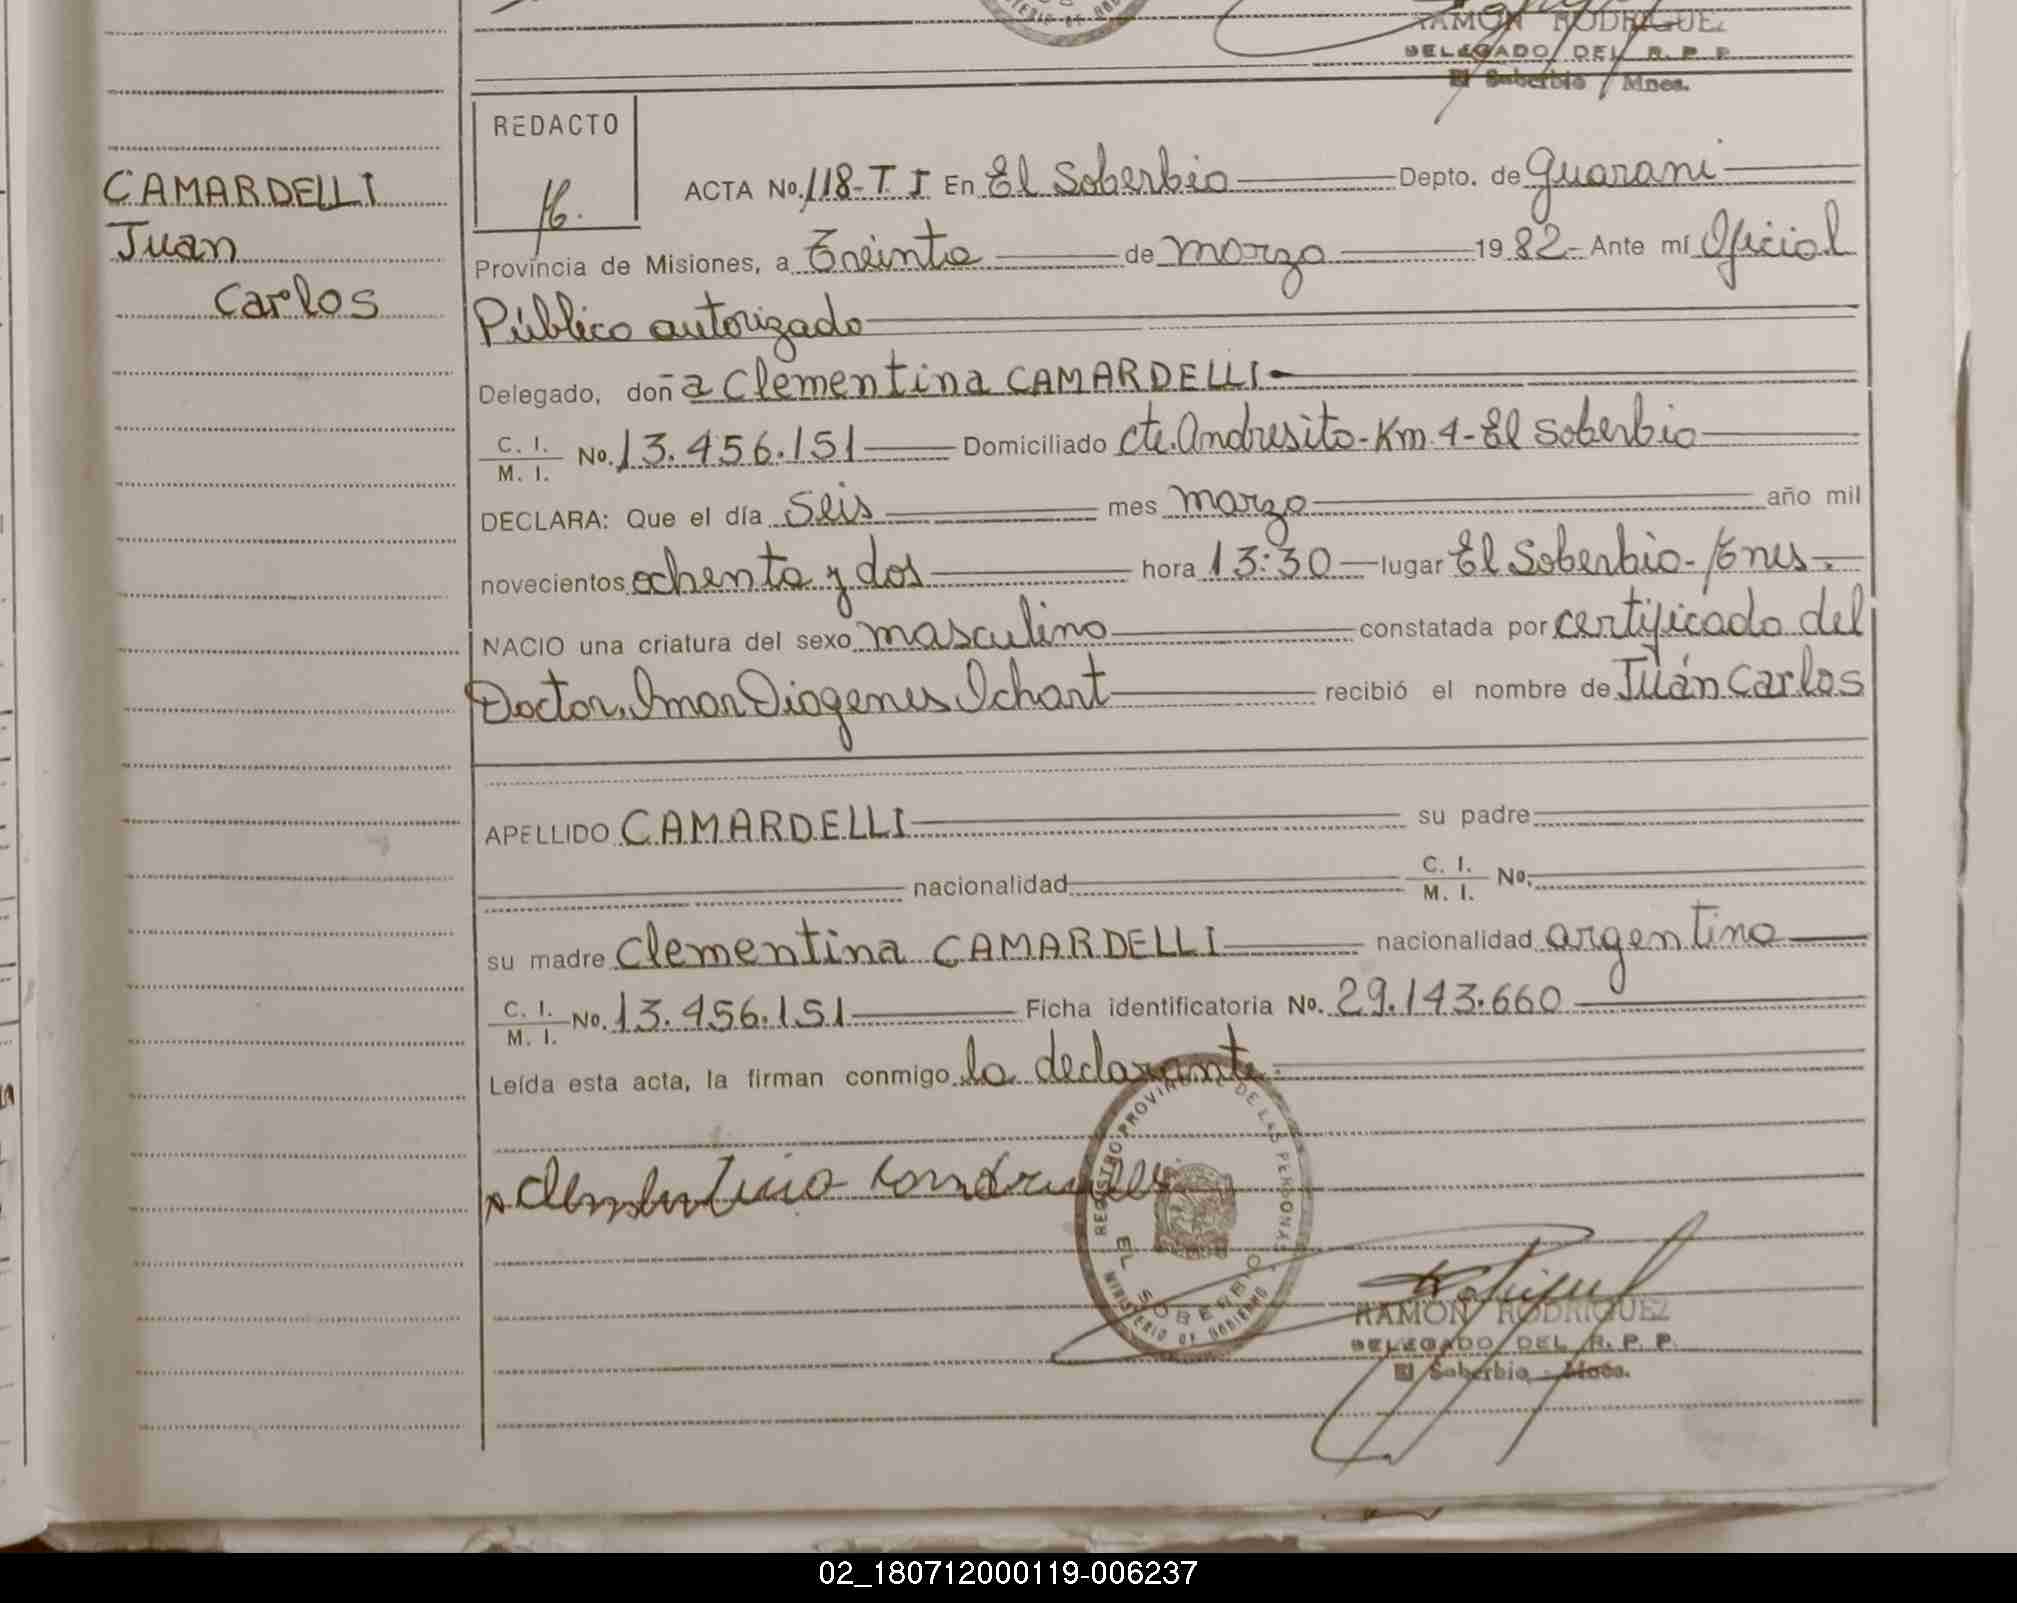 RAMON RODRIGUEZ
DELEGADO DEL R. P. P.
El Soberbio Mnes.
CAMARDELLI
Juan
Carlos
REDACTO
ACTA No. 118-T. I En El Soberbio Depto. de Guarani
Provincia de Misiones, a Treinta de marzo 1982- Ante mí Oficial
Público autorizado
Delegado, doña Clementina CAMARDELLI-
C. I.
M. I. No. 13.456.151 Domiciliado Cte. Andresito-Km 4-El Soberbio
DECLARA: Que el día Seis mes marzo año mil
novecientos ochenta y dos hora 13:30 lugar El Soberbio-
NACIO una criatura del sexo masculino constatada por certificado del
Doctor. Omar Diogenes Ichart recibió el nombre de Juán Carlos
APELLIDO CAMARDELLI su padre
nacionalidad C. I.
M. I. No.
su madre Clementina CAMARDELLI nacionalidad argentina
C. I.
M. I. No. 13.456.151 Ficha identificatoria No. 29.143.660
Leída esta acta, la firman conmigo la declarante.
REGISTRO PROVINCIAL DE LAS PERSONAS
EL SOBERBIO
MINISTERIO DE GOBIERNO
RAMON RODRIGUEZ
DELEGADO DEL R. P. P.
El Soberbio - Mnes.
02_180712000119-006237